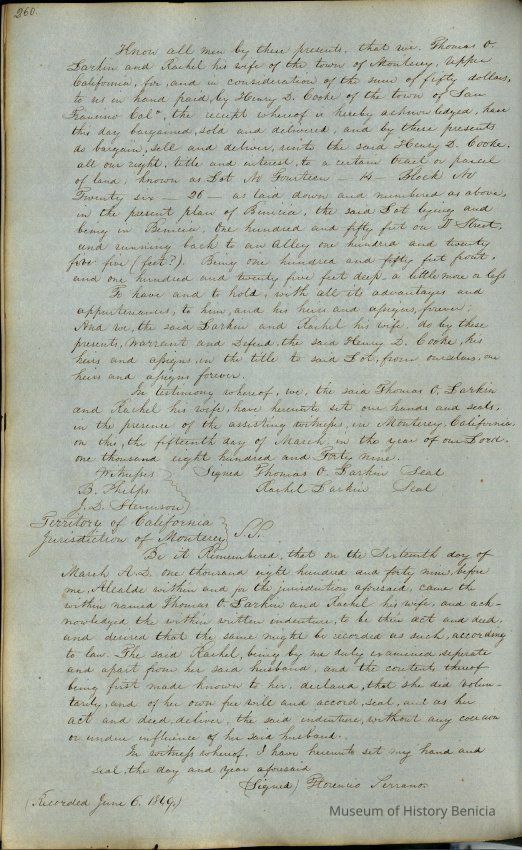 260.
Know all men by these presents, that we Thomas O.
Larkin and Rachel his wife of the town of Monterey, Upper
California, for, and in consideration of the sum of fifty dollars,
to us in hand paid, by Henry D. Cooke of the town of San
Francisco Cala, the receipt whereof is hereby acknowledged, have
this day bargained, sold and delivered, and by these presents
do bargain, sell and deliver, unto the said Henry D. Cooke,
all our right, title and interest, to a certain tract or parcel
of land, known as Lot No Fourteen — 14 — Block No
Twenty six — 26 — as laid down and numbered as above,
in the present plan of Benicia, the said Lot lying and
being in Benicia. One hundred and fifty feet on I Street,
and running back to an Alley one hundred and twenty
five (feet?). Being one hundred and fifty feet front,
and one hundred and twenty five feet deep a little more or less
To have and to hold, with all its advantages and
appurtenances, to him, and his heirs and assigns, forever;
And we, the said Larkin and Rachel his wife, do by these
presents, Warrant and Defend, the said Henry D. Cooke, his
heirs and assigns, in the title to said Lot, from ourselves, our
heirs and assigns forever.
In testimony whereof, we, the said Thomas O. Larkin
and Rachel his wife, have hereunto set our hands and seals,
in the presence of the assisting witness, in Monterey, California,
on this, the fifteenth day of March, in the year of our Lord.
one thousand eight hundred and Forty nine.
Witnesses Signed Thomas O. Larkin Seal
B. Phelps Rachel Larkin Seal
J. D. Stevenson
Territory of California
Jurisdiction of Monterey S.S.
Be it Remembered, that on the Sixteenth day of
March A.D. one thousand eight hundred and forty nine, before
me, Alcalde within and for the jurisdiction aforesaid, came the
within named Thomas O. Larkin and Rachel his wife, and ack-
nowledged the within written indenture, to be their act and deed,
and desired that the same might be recorded as such, according
to law. The said Rachel, being by me duly examined, seperate
and apart from her said husband, and the contents thereof
being first made known to her, declared, that she did volun-
tarily, and of her own free will and accord, seal, and as her
act and deed, deliver, the said indenture, without any coercion
or undue influence of her said husband.
In witness whereof, I have hereunto set my hand and
seal, the day and year aforesaid
(Signed) Florencio Serrano.
(Recorded June 6. 1849.)
Museum of History Benicia